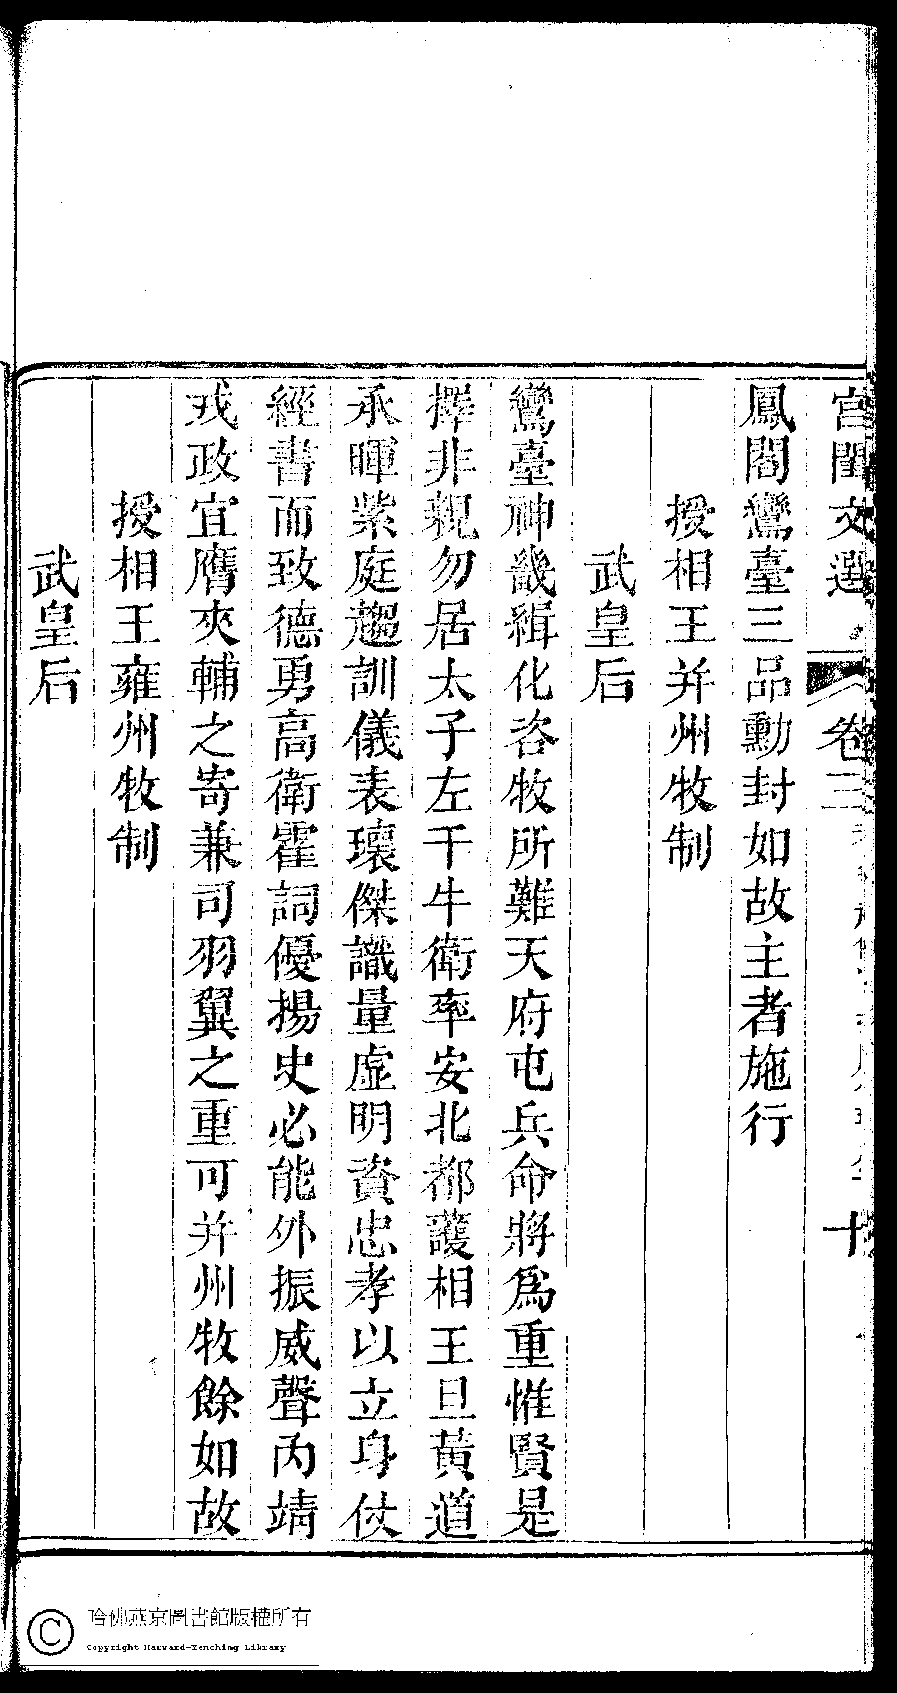 宮閨文選 卷三 十
鳳閣鸞臺三品勳封如故主者施行
授相王并州牧制
武皇后
鸞臺神畿緝化咨牧所難天府屯兵命將為重惟賢是
擇非親勿居太子左千牛衛率安北都護相王旦黃道
承暉紫庭趨訓儀表瓌傑識量虛明資忠孝以立身仗
經書而致德勇高衛霍詞優揚史必能外振威聲內靖
戎政宜膺夾輔之寄兼司羽翼之重可并州牧餘如故
授相王雍州牧制
武皇后
哈佛燕京圖書館版權所有
Copyright Harvard-Yenching Library